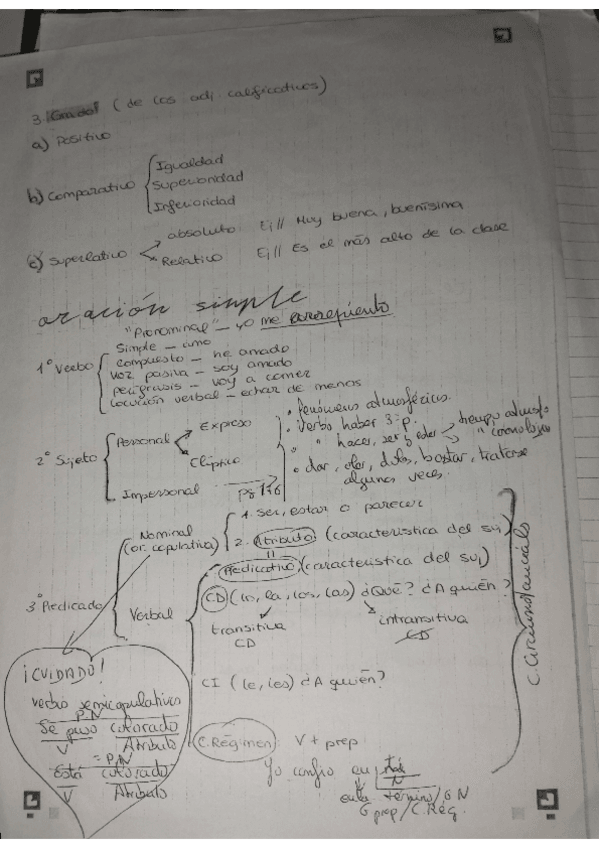 3. ¡Grado! (de los adj. calificativos)
a) Positivo
b) Comparativo
Igualdad
Superioridad
Inferioridad
c) Superlativo
absoluto Ej// Muy buena, buenísima
Relativo Ej// Es el más alto de la clase
oración simple
"Pronominal" – yo me arrepiento
1º Verbo
Simple – amo
compuesto – he amado
voz pasiva – soy amado
perífrasis – voy a comer
locución verbal – echar de menos
2º Sujeto
Personal
Expreso
Elíptico
Impersonal pg 176
• fenómenos atmosféricos.
• Verbo haber 3ª p.
• " hacer, ser
tiempo atmosf
" cronológico
• dar, oler, doler, bastar, tratarse
algunas veces.
3º Predicado
Nominal
(or. copulativa)
1. ser, estar o parecer
2. Atributo (característica del suj)
Verbal
Predicativo (característica del suj)
CD (lo, la, los, las) ¿Qué? ¿A quién?
transitiva
CD
intransitiva
CD
CI (le, les) ¿A quién?
C. Régimen: V + prep
Yo confío en
prep / C. Rég.
C. Circunstanciales
¡CUIDADO!
verbo semicopulativos
P.N
Se puso colorado
V Atributo
= P.N
Está colorado
V Atributo